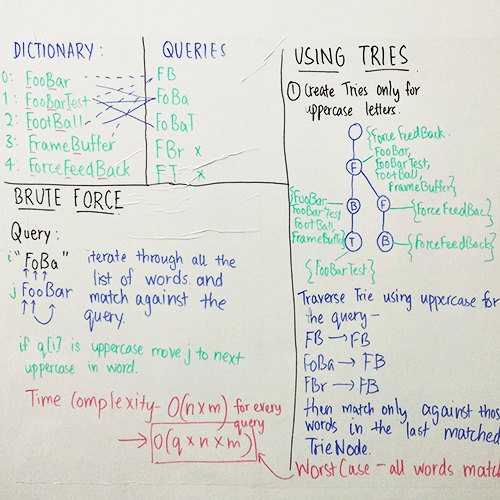 DICTIONARY:
0: FooBar
1: FooBarTest
2: FootBall
3: FrameBuffer
4: ForceFeedBack
QUERIES
FB
FoBa
FoBaT
FBr x
FT x
BRUTE FORCE
Query:
i "FoBa"
j FooBar
iterate through all the
list of words and
match against the
query.
if q[i] is uppercase move j to next
uppercase in word.
Time Complexity- O(n×m) for every
query
→ O(q×n×m)
USING TRIES
① Create Tries only for
uppercase letters.
{ForceFeedBack,
FooBar,
FooBarTest,
FootBall,
FrameBuffer}
F
{FooBar
FooBarTest
FootBall,
FrameBuffer}
B
F
{ForceFeedBac}
T
B
{ForceFeedBack}
{FooBarTest}
Traverse Trie using uppercase for
the query-
FB → FB
FoBa → FB
FBr → FB
then match only against thos
words in the last matched
TrieNode.
Worst Case - all words match